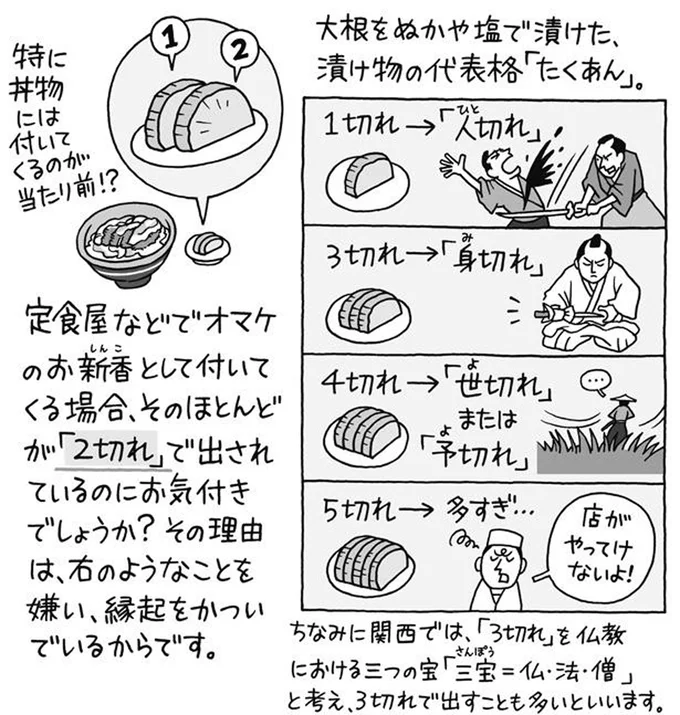 大根をぬかや塩で漬けた、
漬け物の代表格「たくあん」。
1切れ→「人切れ」
ひと
3切れ→「身切れ」
み
4切れ→「世切れ」
よ
または
「予切れ」
よ
…
5切れ→多すぎ…
店が
やってけ
ないよ!
ちなみに関西では、「3切れ」を仏教
における三つの宝「三宝=仏・法・僧」
さんぽう
と考え、3切れで出すことも多いといいます。
1
2
特に
丼物
には
付いて
くるのが
当たり前!?
定食屋などでオマケ
のお新香として付いて
しんこ
くる場合、そのほとんど
が「2切れ」で出され
ているのにお気付き
でしょうか?その理由
は、右のようなことを
嫌い、縁起をかつい
でいるからです。